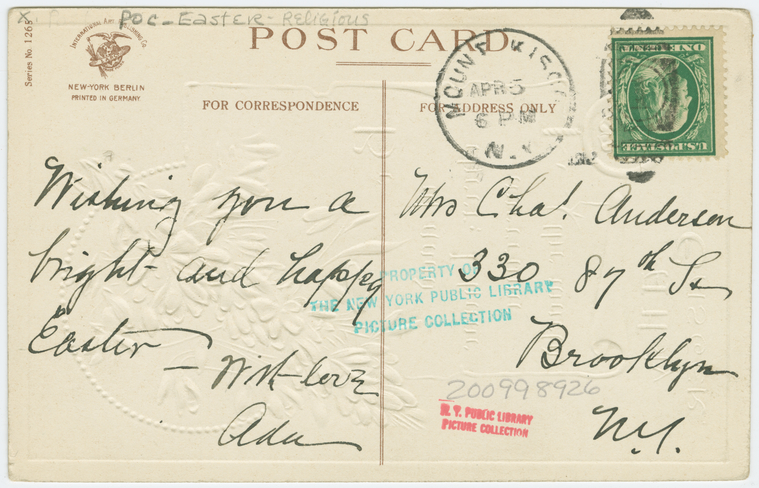 x PDC - Easter - Religious
Series No. 126
International Art Publishing Co.
NEW-YORK BERLIN
PRINTED IN GERMANY
POST CARD
FOR CORRESPONDENCE
FOR ADDRESS ONLY
MOUNT KISCO
APR 5
6 PM
N.Y.
U.S. POSTAGE
ONE CENT
Wishing you a
bright and happy
Easter
- With love
Ada
Mrs Chas. Anderson
330 87th St
Brooklyn
N.Y.
PROPERTY OF
THE NEW YORK PUBLIC LIBRARY
PICTURE COLLECTION
200998926
N. Y. PUBLIC LIBRARY
PICTURE COLLECTION